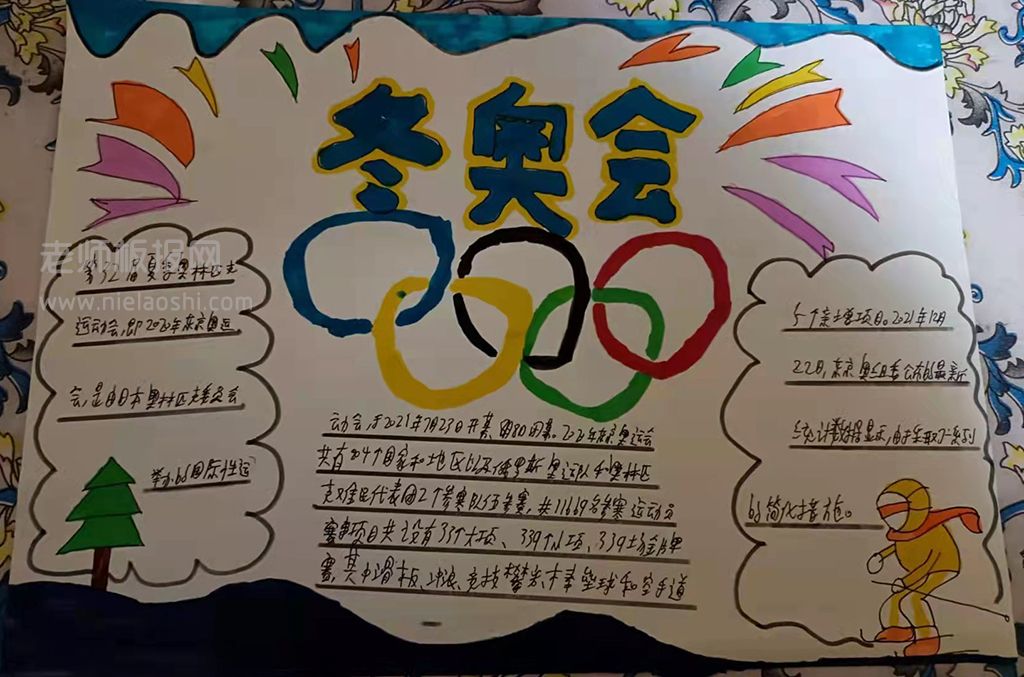 冬奥会
老师板报网
www.nielaoshi.com
第32届夏季奥林匹克
运动会,即2020年东京奥运
会,是由日本奥林匹克委员会
举办的国际性运
动会,于2021年7月23日开幕,8月8日闭幕。2020年东京奥运会
共有204个国家和地区以及俄罗斯奥运队和奥林匹
克难民代表团2个参赛队伍参赛,共11669名参赛运动员
赛事项目共设有33个大项、339个小项,339场金牌
赛,其中滑板、冲浪、竞技攀岩、棒垒球和空手道
5个是新增项目。2021年12月
22日,东京奥组委公布的最新
统计数据显示,由于采取了一系列
的简化措施。